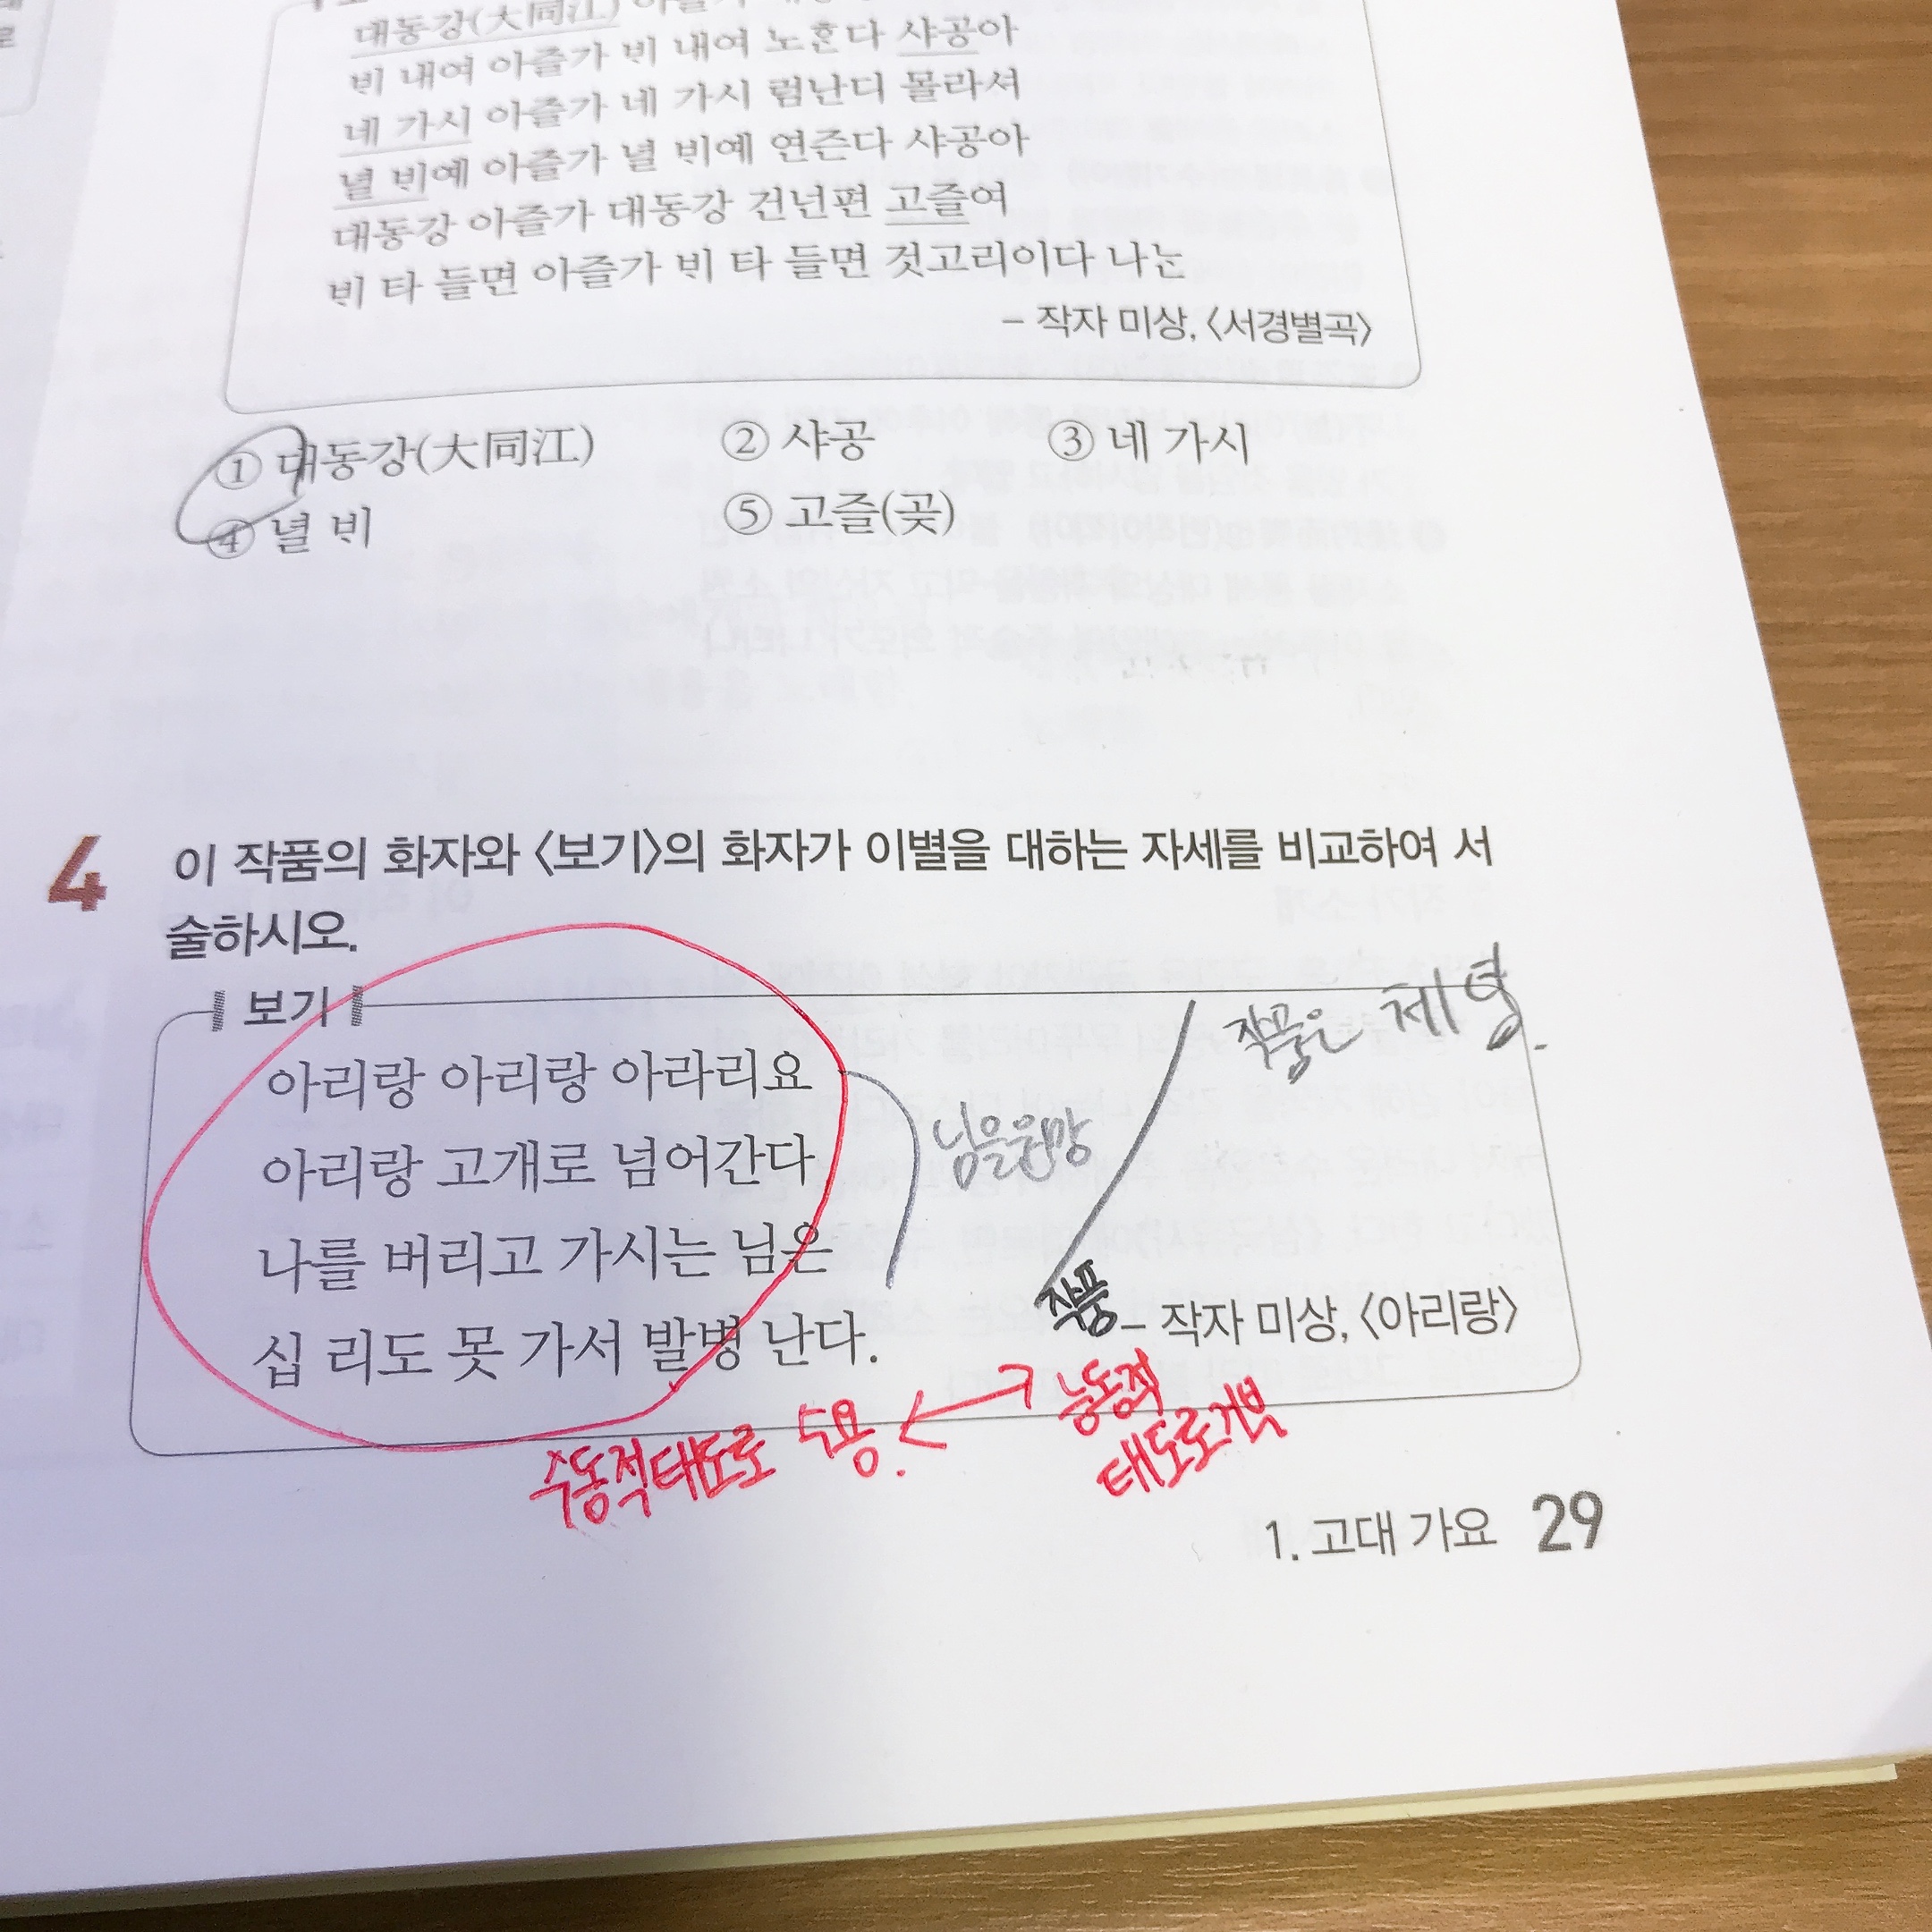 대동강(大同江)
ᄇᆡ 내여 아즐가 ᄇᆡ 내여 노ᄒᆞᆫ다 샤공아
네 가시 아즐가 네 가시 럼난디 몰라셔
녈 ᄇᆡ예 아즐가 녈 ᄇᆡ예 연즌다 샤공아
대동강 아즐가 대동강 건넌편 고즐여
ᄇᆡ 타 들면 아즐가 ᄇᆡ 타 들면 것고리이다 나ᄂᆞᆫ
- 작자 미상, 〈서경별곡〉
① 대동강(大同江) ② 샤공 ③ 네 가시
④ 녈 ᄇᆡ ⑤ 고즐(곶)
4 이 작품의 화자와 〈보기〉의 화자가 이별을 대하는 자세를 비교하여 서
술하시오.
보기
작품은 체념.
아리랑 아리랑 아라리요
아리랑 고개로 넘어간다
님을원망
나를 버리고 가시는 님은
십 리도 못 가서 발병 난다.
작품
- 작자 미상, 〈아리랑〉
수동적태도로 수용. ↔ 능동적
태도로거부
1. 고대 가요 29